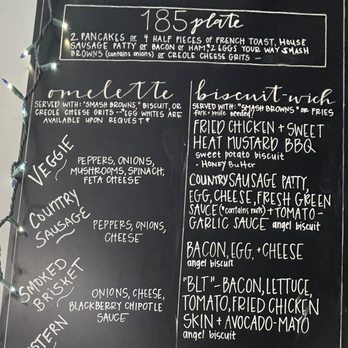 185 plate
2 PANCAKES OR 4 HALF PIECES OF FRENCH TOAST, HOUSE
SAUSAGE PATTY OR BACON OR HAM, 2 EGGS YOUR WAY SMASH
BROWNS (contains onions) OR CREOLE CHEESE GRITS —
omelette
SERVED WITH: "SMASH BROWNS," BISCUIT, OR
CREOLE CHEESE GRITS -- *EGG WHITES ARE
AVAILABLE UPON REQUEST*
VEGGIE
PEPPERS, ONIONS,
MUSHROOMS, SPINACH,
FETA CHEESE
COUNTRY
SAUSAGE
PEPPERS, ONIONS,
CHEESE
SMOKED
BRISKET
ONIONS, CHEESE,
BLACKBERRY CHIPOTLE
SAUCE
STERN
biscuit-wich
SERVED WITH: "SMASH BROWNS" OR FRIES
fork + knife needed!
FRIED CHICKEN + SWEET
HEAT MUSTARD BBQ
sweet potato biscuit
+ HONEY BUTTER
COUNTRY SAUSAGE PATTY,
EGG, CHEESE, FRESH GREEN
SAUCE (*contains nuts) + TOMATO-
GARLIC SAUCE angel biscuit
BACON, EGG, + CHEESE
angel biscuit
"BLT" - BACON, LETTUCE,
TOMATO, FRIED CHICKEN
SKIN + AVOCADO-MAYO
angel biscuit